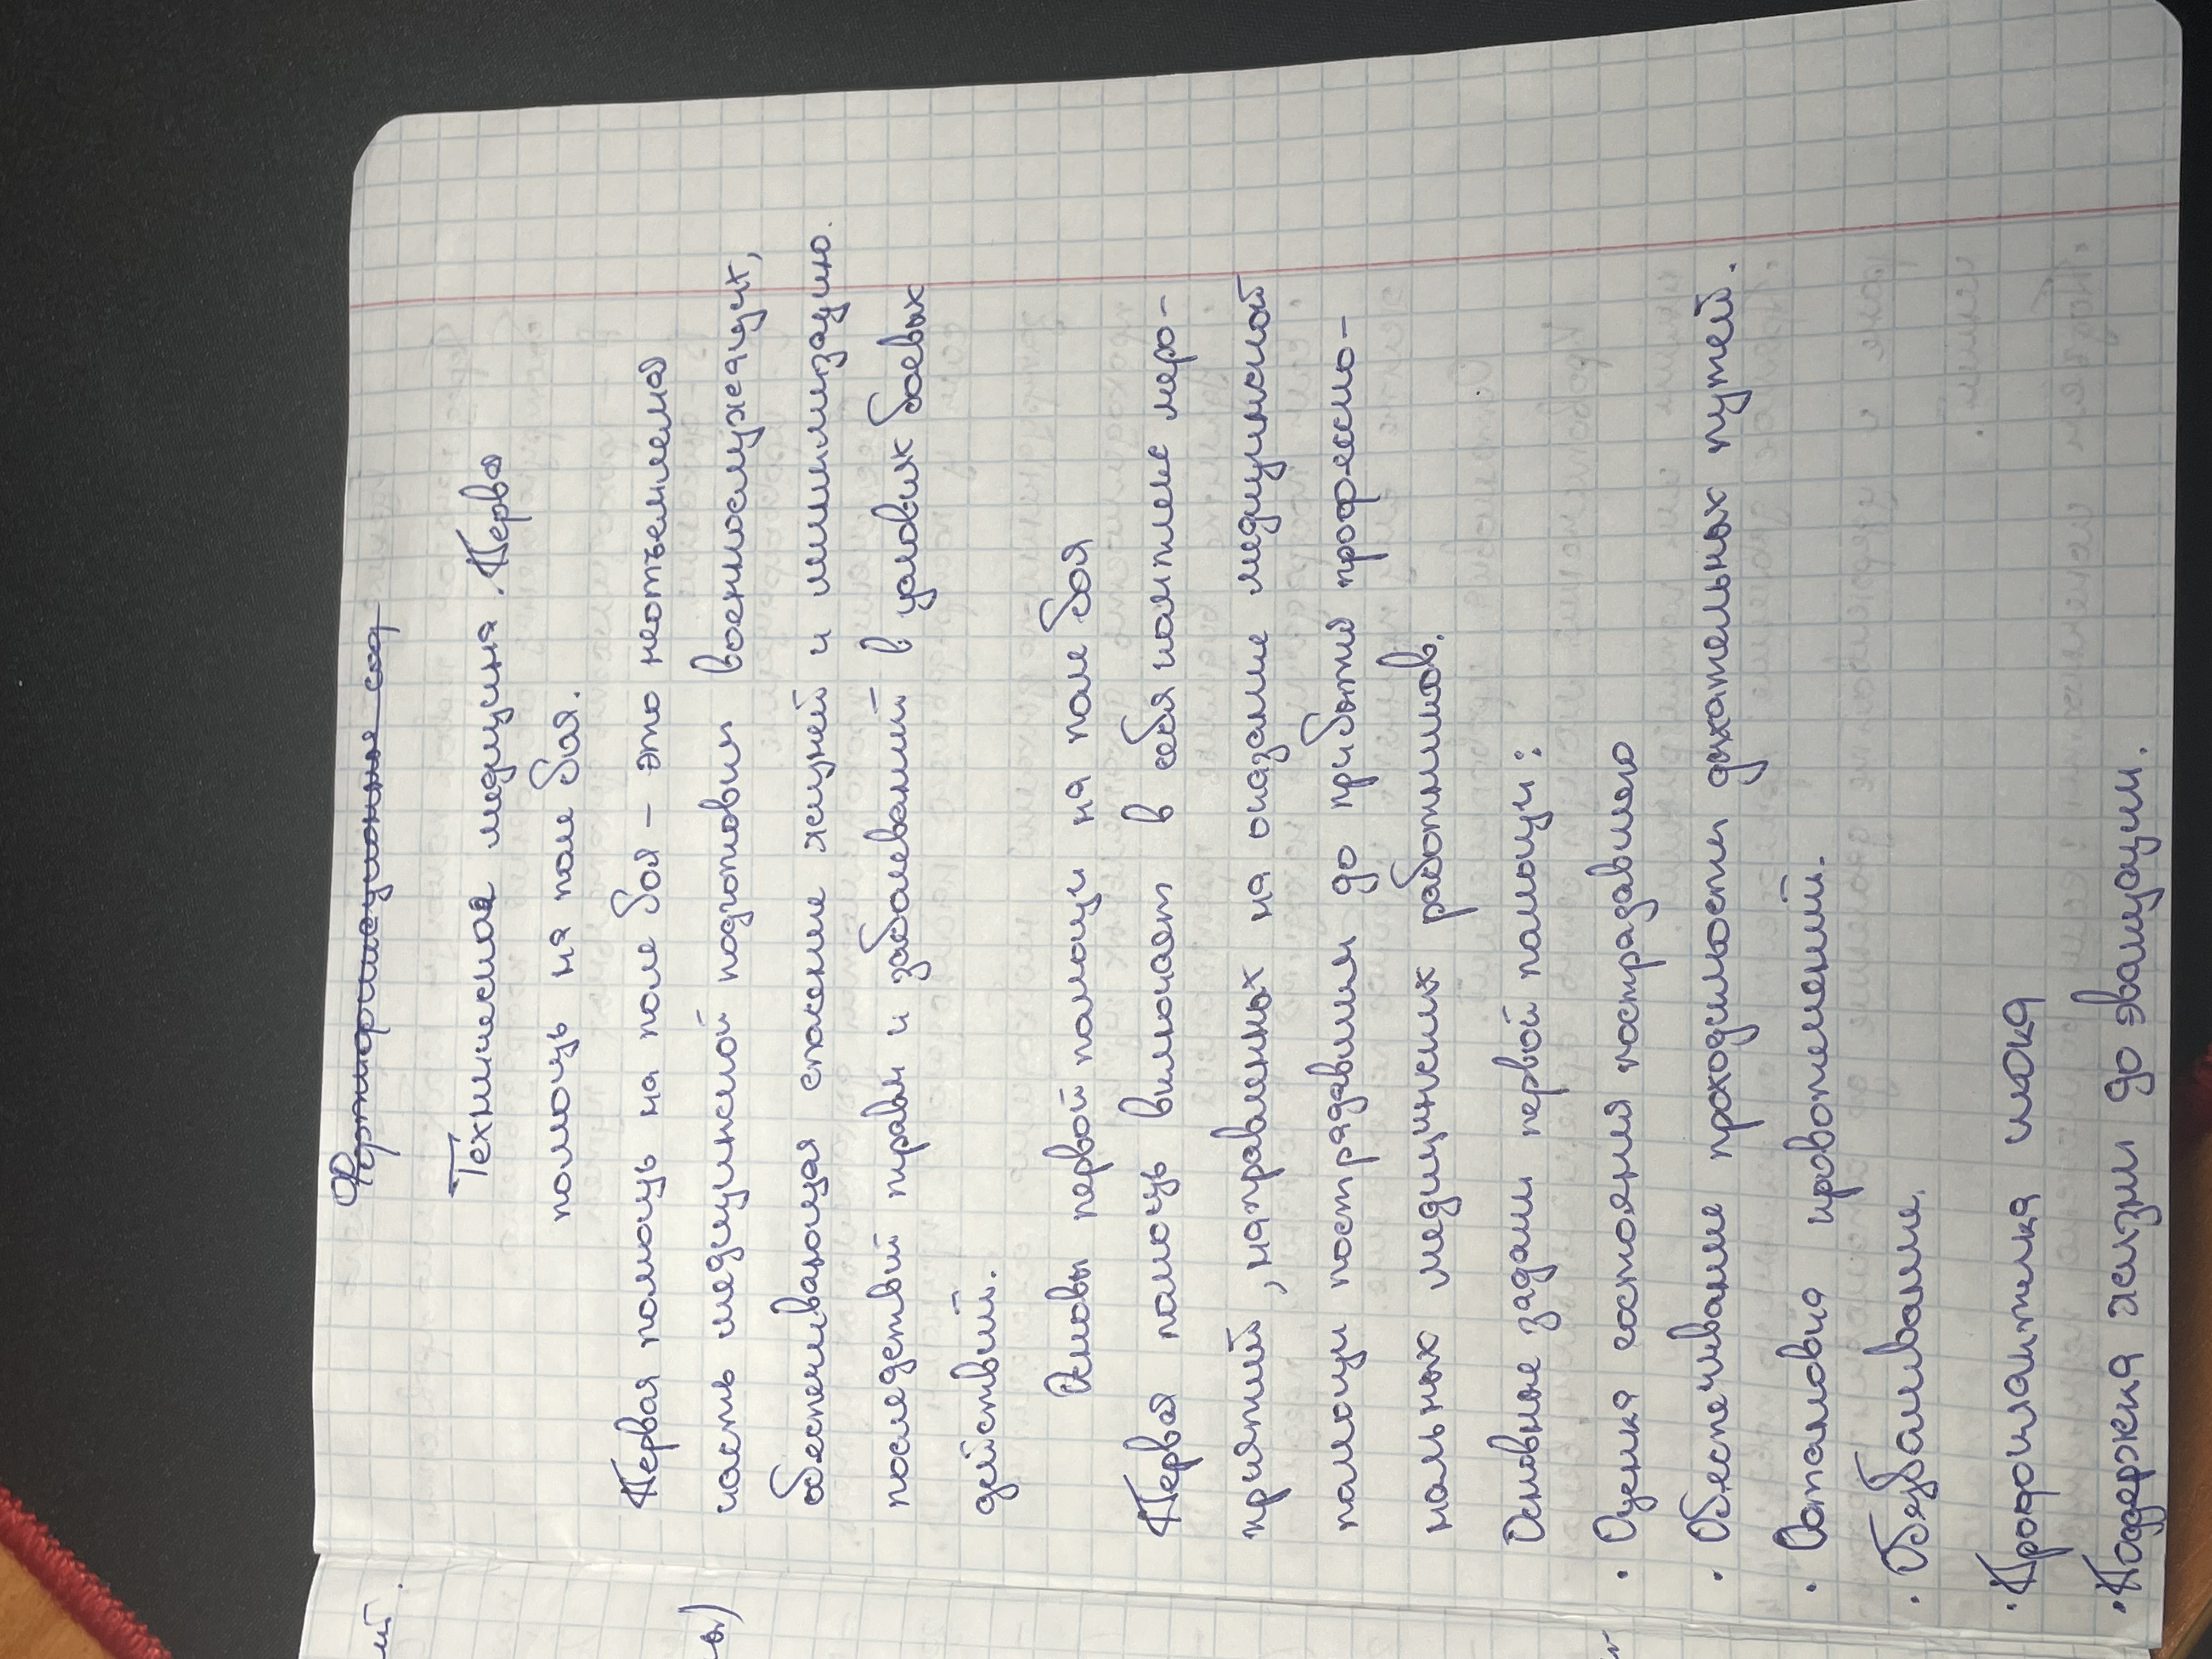 Фортификационные соор
Техническая медицина. Первая
помощь на поле боя.
Первая помощь на поле боя – это неотъемлемая
часть медицинской подготовки военнослужащих,
обеспечивающая спасение жизней и минимизацию
последствий травм и заболеваний в условиях боевых
действий.
Основы первой помощи на поле боя
Первая помощь включает в себя комплекс меро-
приятий, направленных на оказание медицинской
помощи пострадавшим до прибытия профессио-
нальных медицинских работников.
Основные задачи первой помощи:
· Оценка состояния пострадавшего
· Обеспечивание проходимости дыхательных путей.
· Остановка кровотечений.
· Обезбаливание.
· Профилактика шока
· Поддержка жизни до эвакуации.